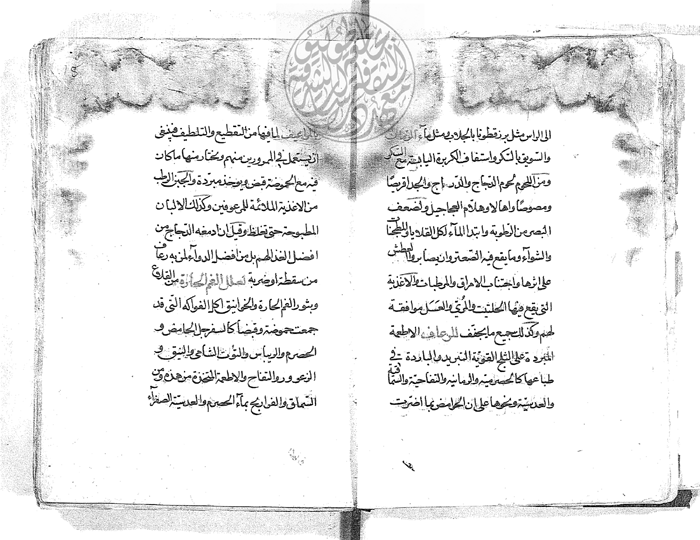 الى الراس مثل بزر قطونا بالجلاب مثل ماء
والسويق بالسكر واستفاف الكزبرة اليابسة مع السكر
ومن اللحوم لحوم الدجاج والدراج والجدا قريصا
ومصوصا وهلام العجاجيل ولضعف
البصر من الرطوبة وابتدا الماء لكل القلايا والمطجنات
والشواء وما يقع فيه الصعتر وان يصابر والعطش
على اثرها واجتناب الامراق والمرطبات والاغذية
التى يقع فيها الحلتيت والمرى والعسل موافقة
لهم وكذلك جميع ما يجفف للرعاف الاطعمة
المبردة على الثلج القوية التبريد والباردة فى
طباعها كالحصرمية والرمانيه والتفاحية والسماقية
والعدسية ونحوها على ان الحوامض بما اضرت
لما فيها من التقطيع والتلطيف فينبغى
ان يستعمل فى المرورين منهم ويختار منها ما كان
فيه مع الحموضة قبض ويوخذ مبردة والجبن الرطب
من الاغذية الملائمة للمرعوفين وكذلك الالبان
المطبوخة حتى تغلظ وقيل ان ادمغه الدجاج من
افضل الغذا لهم بل من افضل الدواء لمن به رعاف
من سقطة او ضربة لعلل الفم الحارة من القلاع
وبثور الفم الحارة والخوانيق اكل الفواكه التى قد
جمعت حموضة وقبضا كالسفرجل الحامض و
الحصرم والريباس والتوت الشامى والنبق و
الزعرور والتفاح والاطعمة المتخذة من هذه ومن
السماق والفراريج بماء الحصرم والعدسية الصفراء